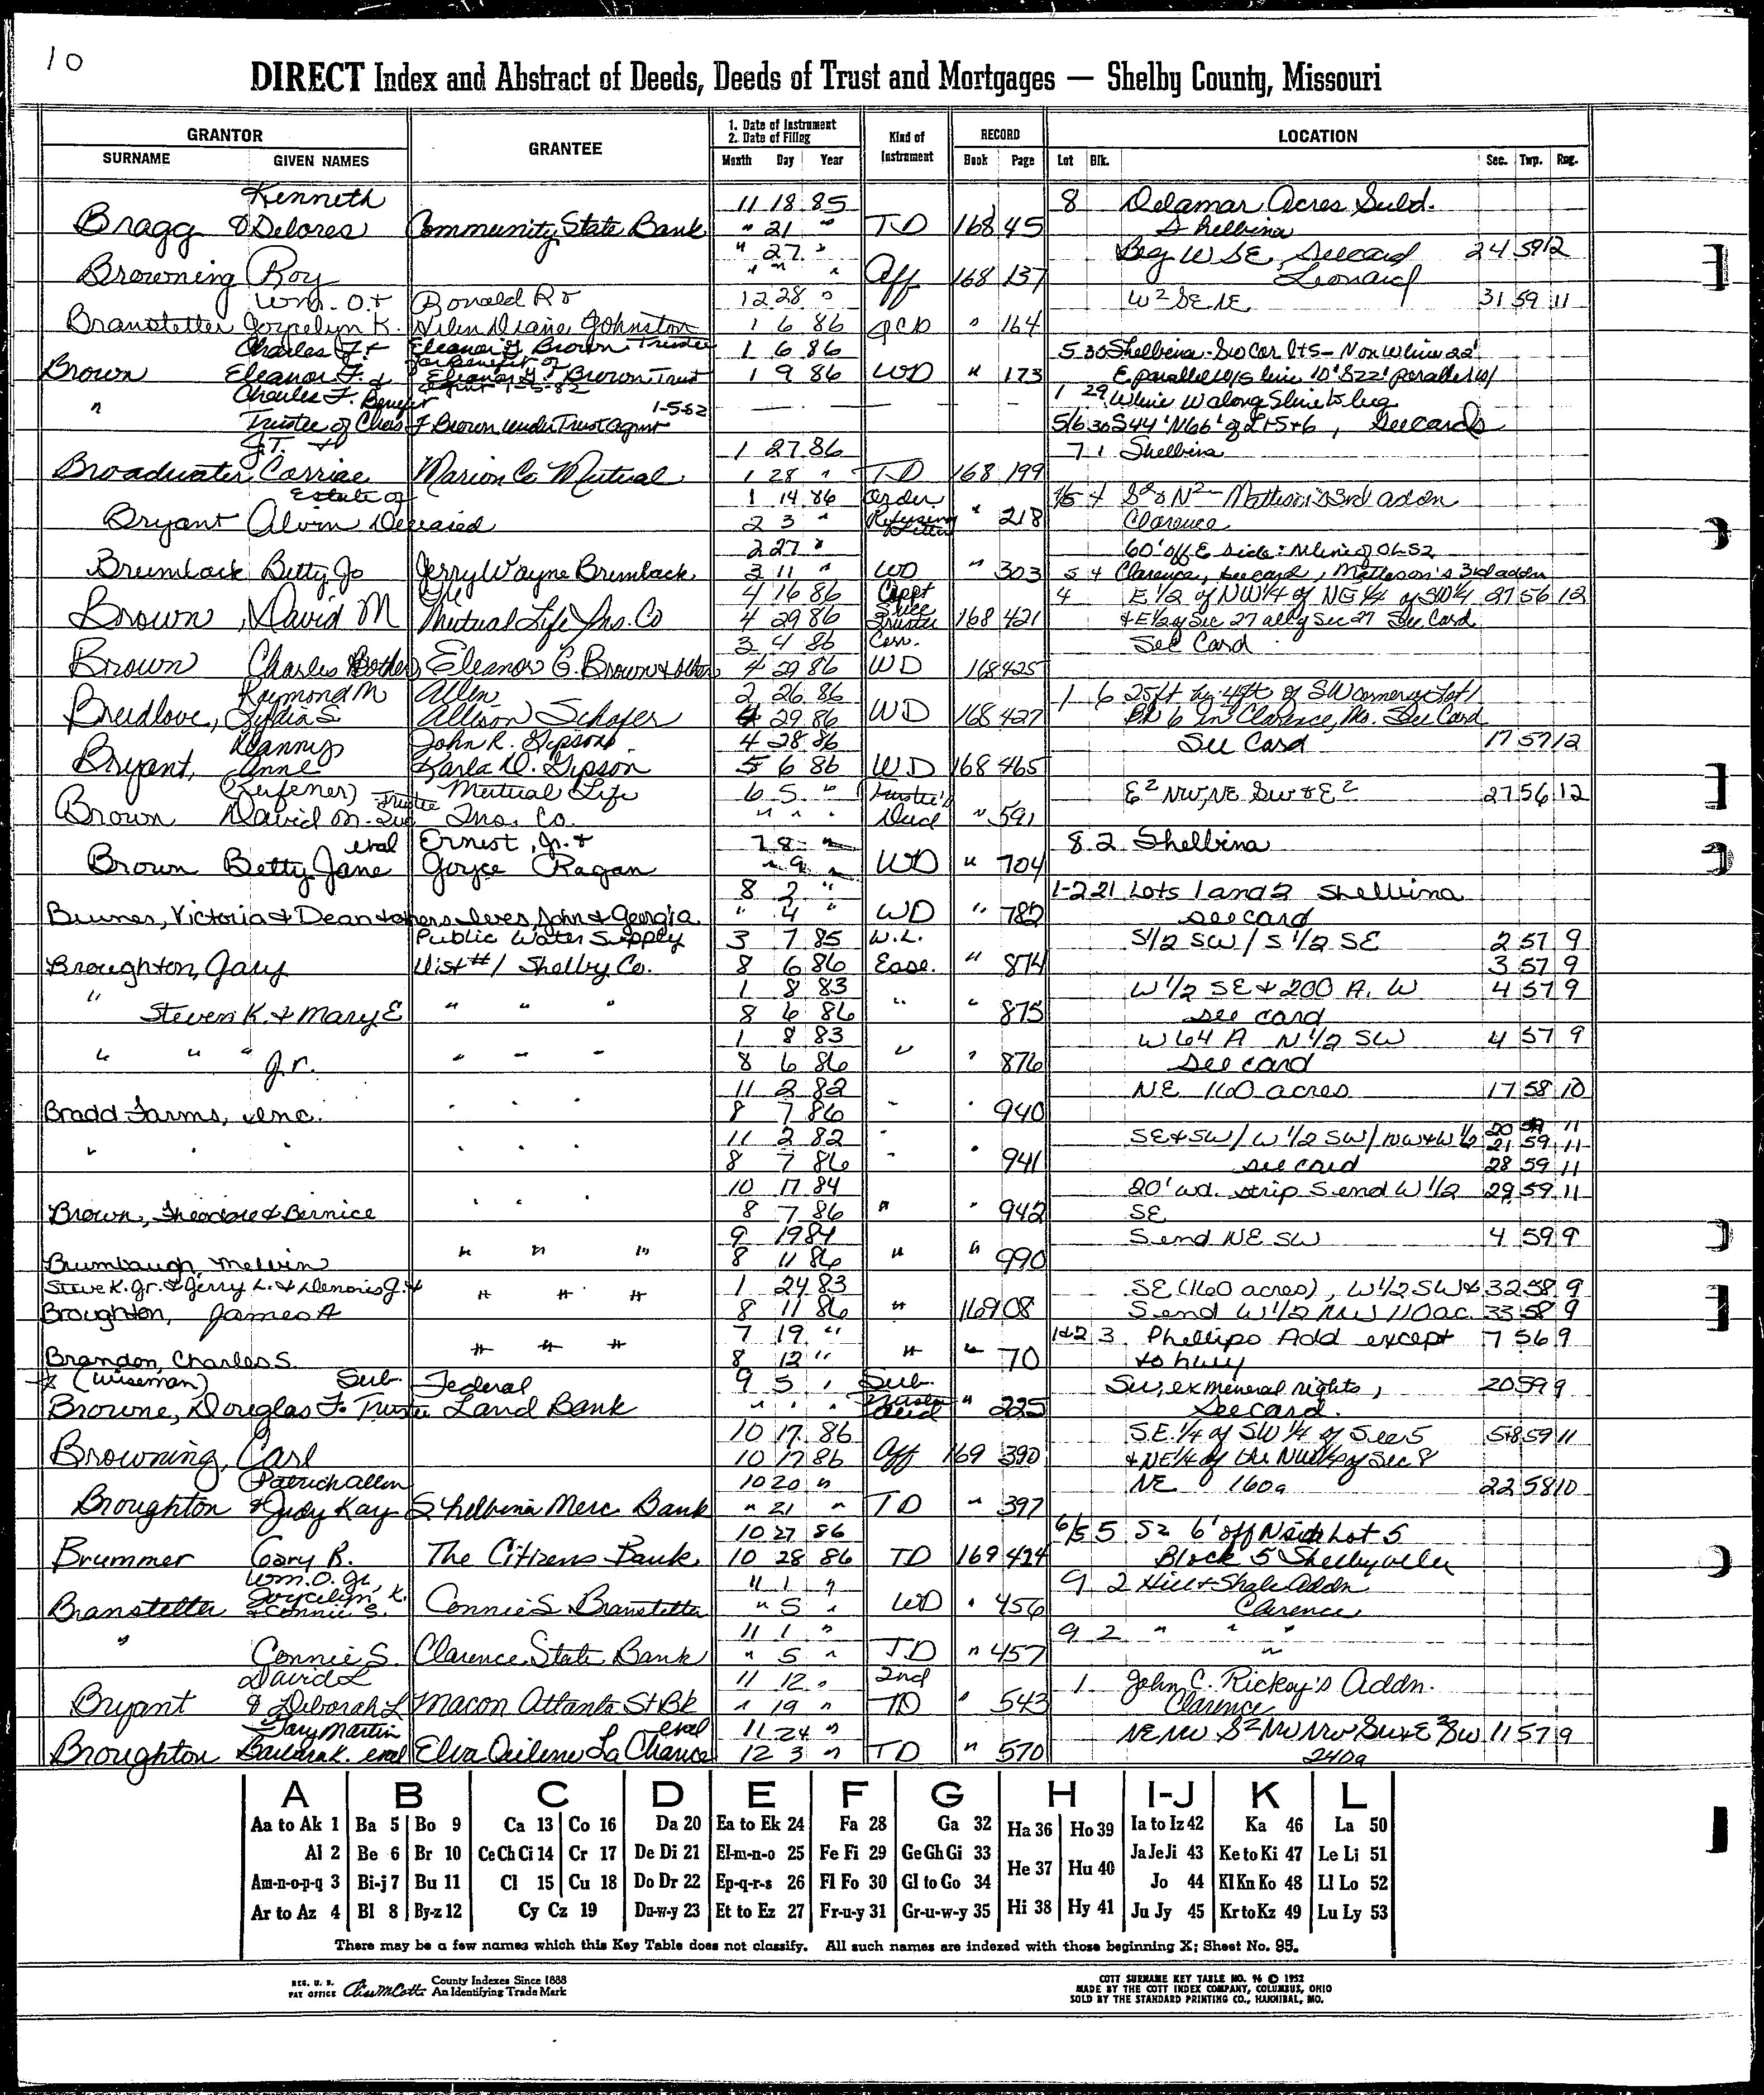 10
DIRECT Index and Abstract of Deeds, Deeds of Trust and Mortgages — Shelby County, Missouri
GRANTOR GRANTEE 1. Date of Instrument 2. Date of Filleg Kind of Instrument RECORD LOCATION
SURNAME GIVEN NAMES Month Day Year Book Page Lot Blk. Sec. Twp. Rng.
Kenneth 11 18 85 8 Delamar Acres Subd.
Bragg & Delores Community State Bank " 21 " TD 168 45 Shelbina
" 27 " Beg W SE, See card 24 59 12
Browning Roy " " " Aff 168 137 Leonard
Wm. O. + Ronald R + 12 28 " W² SE NE 31 59 11
Branstetter Joycelyn K. Diane Johnston 1 6 86 QCD " 164
Charles F. + Eleanor G. Brown Trustee 1 6 86 5 30 Shelbina - SW Cor Lt 5 - N on W line 22'
Brown Eleanor F. & for Benefit of Eleanor G. F Brown Trust 1 9 86 WD " 173 E parallel w/S line 10' S 22' parallel w/
" Charles F. Benefit agmt 1-5-82 — — — 1 29 W line W along S line to beg
Trustee of Chas F Brown under Trust agmt 1-5-82 5/6 30 S 44' N 66' of Lt 5 + 6, See cards
J.T. + 1 27 86 7 1 Shelbina
Broadwater Carriae Marion Co Mutual 1 28 " TD 168 199
Estate of 1 14 86 Order 4 S² & N² - Matteson's 3rd addn
Bryant Alvin Deceased 2 3 " Refusing Letters " 218 Clarence
2 27 " 60' off E side: N line of
Brumback Betty Jo Jerry Wayne Brumback 3 11 " WD " 303 5 4 Clarence, see card, Matteson's 3rd addn
4 16 86 Appt 4 E 1/2 of NW 1/4 of NE 1/4 of SW 1/4 27 56 12
Brown, David M Mutual Life Ins. Co 4 29 86 Succ Trustee 168 421 + E 1/2 of Sec 27 all of Sec 27 See Card
3 4 86 Corr. See Card
Brown Charles & others Eleanor G. Brown & others 4 29 86 WD 168 425
Raymond M Allen 2 26 86 1 6 25 ft by 4 ft of SW corner of Lot 1
Breedlove, Lydia S Allison Schafer 4 29 86 WD 168 427 Blk 6 in Clarence, Mo. See Card
Danny John R. Gipson 4 28 86 See Card 17 57 12
Bryant, Anne Karla D. Gipson 5 6 86 WD 168 465
(Refener) Trustee Mutual Life 6 5 " Trustee's E² NW, NE SW & E² 27 56 12
Brown David M. Suc Ins. Co. " " " Deed " 591
eval Ernest, Jr. + 7 8 " 8 2 Shelbina
Brown Betty Jane Joyce Ragan " 9 " WD " 704
8 2 " 1-2 21 Lots 1 and 2 Shelbina
Brunes, Victoria & Dean & others Ives, John & Georgia " 4 " WD " 782 see card
Public Water Supply 3 7 85 W.L. S1/2 SW / S 1/2 SE 2 57 9
Broughton, Gary Dist #1 Shelby Co. 8 6 86 Ease. " 874 3 57 9
" 1 8 83 W 1/2 SE & 200 A. W 4 57 9
Steven K. & Mary E " " " 8 6 86 " " 875 see card
1 8 83 W 64 A N 1/2 SW 4 57 9
" " " Jr. " " " 8 6 86 " " 876 see card
11 2 82 NE 160 acres 17 58 10
Bradd Farms, Inc. " " " 8 7 86 " " 940
11 2 82 SE & SW / W 1/2 SW / NW & W 1/2 20 59 11
21 59 11
" " " " " " 8 7 86 " " 941 see card 28 59 11
10 17 84 20' wd. strip S end W 1/2 29 59 11
Brown, Theodore & Bernice " " " 8 7 86 " " 942 SE
9 19 84 S end NE SW 4 59 9
Brumbaugh, Melvin " " " 8 11 86 " " 990
Steve K. Jr. & Jerry L. & Denoris J. & 1 24 83 SE (160 acres), W 1/2 SW & 32 58 9
Broughton, James A " " " 8 11 86 " 169 08 S end W 1/2 NW 110 ac. 33 58 9
7 19 " 1&2 3 Phillips Add except 7 56 9
Brandon, Charles S. " " " 8 12 " " " 70 to hwy
& (Wiseman) Sub. Federal 9 5 " Sub. SW, ex mineral rights, 20 59 9
Browne, Douglas F. Trustee Land Bank " " " Trustee Deed " 225 See card.
10 17 86 S.E. 1/4 of SW 1/4 of Sec 5 5&8 59 11
Browning, Carl 10 17 86 Aff 169 390 + NE 1/4 of the NW 1/4 of Sec 8
Patrick Allen 10 20 " NE 160a 22 58 10
Broughton & Judy Kay Shelbina Merc Bank " 21 " TD " 397
10 27 86 6/5 5 S2 6' off N side Lot 5
Brummer Gary R. The Citizens Bank 10 28 86 TD 169 424 Block 5 Shelbyville
Wm. O. Jr, 11 1 " 9 2 Hill & Shale Addn
Branstetter Joycelyn K. & Connie S. Connie S Branstetter " 5 " WD " 456 Clarence
" 11 1 " 9 2 " " "
Connie S. Clarence State Bank " 5 " TD " 457 "
David L 11 12 " 2nd 1 John C. Rickey's Addn.
Bryant & Deborah L Macon Atlanta St Bk " 19 " TD " 543 Clarence
Gary Martin eval 11 24 " NE NW S² NW NW SW & E² SW 11 57 9
Broughton Barbara K. eval Elva Oilene La Chance 12 3 " TD " 570 240a
A B C D E F G H I-J K L
Aa to Ak 1 Ba 5 Bo 9 Ca 13 Co 16 Da 20 Ea to Ek 24 Fa 28 Ga 32 Ha 36 Ho 39 Ia to Iz 42 Ka 46 La 50
Al 2 Be 6 Br 10 Ce Ch Ci 14 Cr 17 De Di 21 El-m-n-o 25 Fe Fi 29 Ge Gh Gi 33 He 37 Hu 40 Ja Je Ji 43 Ke to Ki 47 Le Li 51
Am-n-o-p-q 3 Bi-j 7 Bu 11 Cl 15 Cu 18 Do Dr 22 Ep-q-r-s 26 Fl Fo 30 Gl to Go 34 Jo 44 Kl Kn Ko 48 Ll Lo 52
Ar to Az 4 Bl 8 By-z 12 Cy Cz 19 Du-w-y 23 Et to Ez 27 Fr-u-y 31 Gr-u-w-y 35 Hi 38 Hy 41 Ju Jy 45 Kr to Kz 49 Lu Ly 53
There may be a few names which this Key Table does not classify. All such names are indexed with those beginning X; Sheet No. 95.
REG. U. S. PAT OFFICE County Indexes Since 1888 An Identifying Trade Mark
COTT SURNAME KEY TABLE NO. 96 © 1952
MADE BY THE COTT INDEX COMPANY, COLUMBUS, OHIO
SOLD BY THE STANDARD PRINTING CO., HANNIBAL, MO.